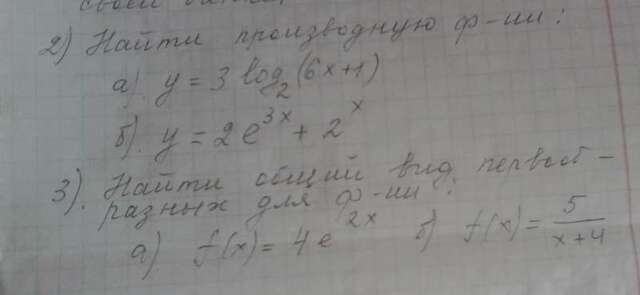 2) Найти производную ф-ии:
а). y = 3 log₂(6x+1)
б). y = 2e^{3x} + 2^x
3). Найти общий вид первооб-
разных для ф-ии:
а) f(x) = 4e^{2x} б) f(x) = 5/(x+4)